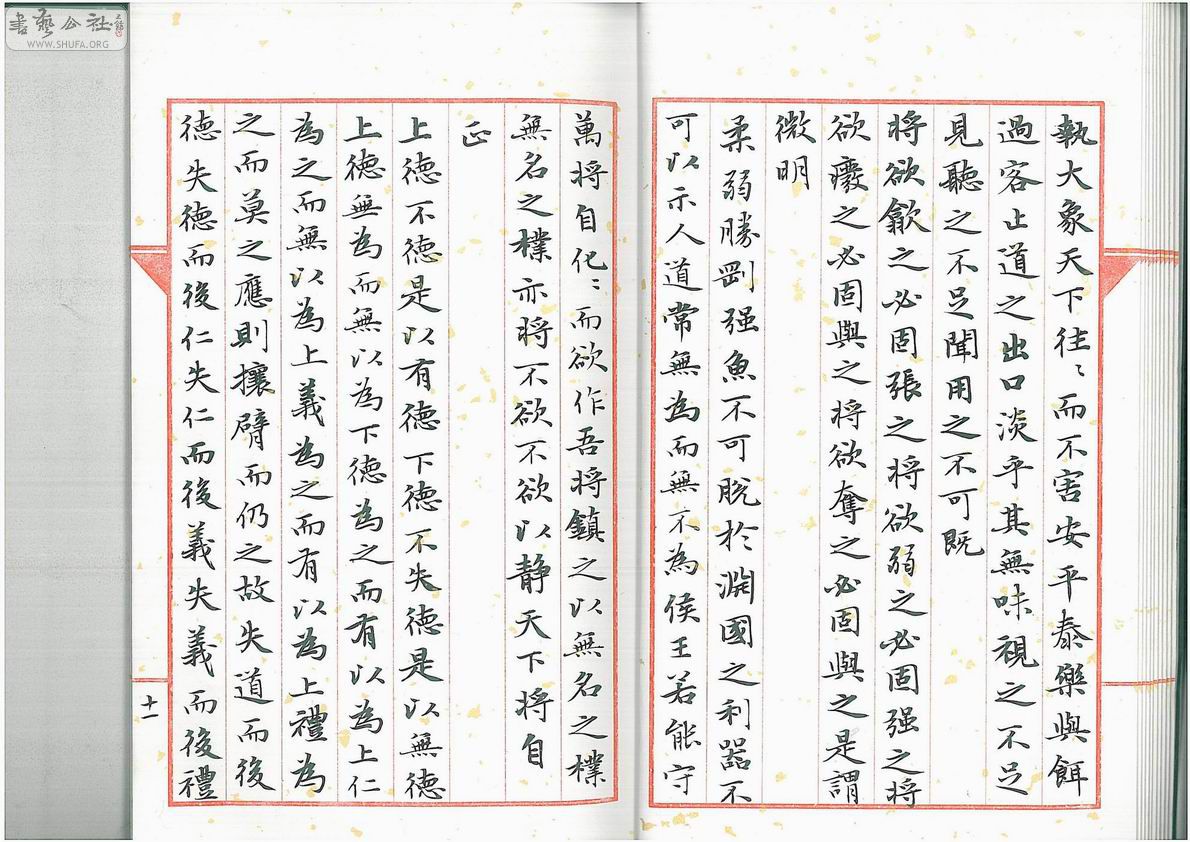 書藝公社
WWW.SHUFA.ORG
執大象天下往〻而不害安平泰樂與餌
過客止道之出口淡乎其無味視之不足
見聽之不足聞用之不可既
將欲歙之必固張之將欲弱之必固强之將
欲癈之必固興之將欲奪之必固與之是謂
微明
柔弱勝剛强魚不可脫於淵國之利器不
可以示人道常無為而無不為侯王若能守
萬將自化〻而欲作吾將鎮之以無名之樸
無名之樸亦將不欲不欲以静天下將自
正
上德不德是以有德下德不失德是以無德
上德無為而無以為下德為之而有以為上仁
為之而無以為上義為之而有以為上禮為
之而莫之應則攘臂而仍之故失道而後
德失德而後仁失仁而後義失義而後禮
十一